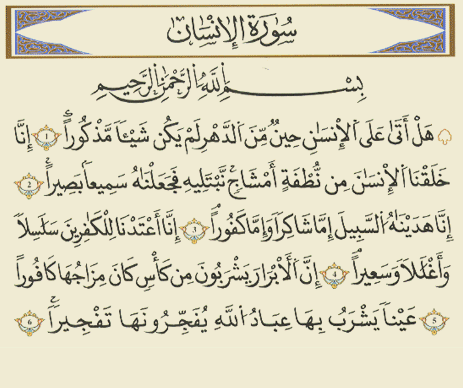 سُورَةُ الإِنْسَانِ
بِسْمِ اللَّهِ الرَّحْمَٰنِ الرَّحِيمِ
هَلْ أَتَىٰ عَلَى ٱلْإِنسَٰنِ حِينٌ مِّنَ ٱلدَّهْرِ لَمْ يَكُن شَيْـًٔا مَّذْكُورًا ١ إِنَّا
خَلَقْنَا ٱلْإِنسَٰنَ مِن نُّطْفَةٍ أَمْشَاجٍ نَّبْتَلِيهِ فَجَعَلْنَٰهُ سَمِيعًۢا بَصِيرًا ٢
إِنَّا هَدَيْنَٰهُ ٱلسَّبِيلَ إِمَّا شَاكِرًا وَإِمَّا كَفُورًا ٣ إِنَّآ أَعْتَدْنَا لِلْكَٰفِرِينَ سَلَٰسِلَا۟
وَأَغْلَٰلًا وَسَعِيرًا ٤ إِنَّ ٱلْأَبْرَارَ يَشْرَبُونَ مِن كَأْسٍ كَانَ مِزَاجُهَا كَافُورًا
٥ عَيْنًا يَشْرَبُ بِهَا عِبَادُ ٱللَّهِ يُفَجِّرُونَهَا تَفْجِيرًا ٦